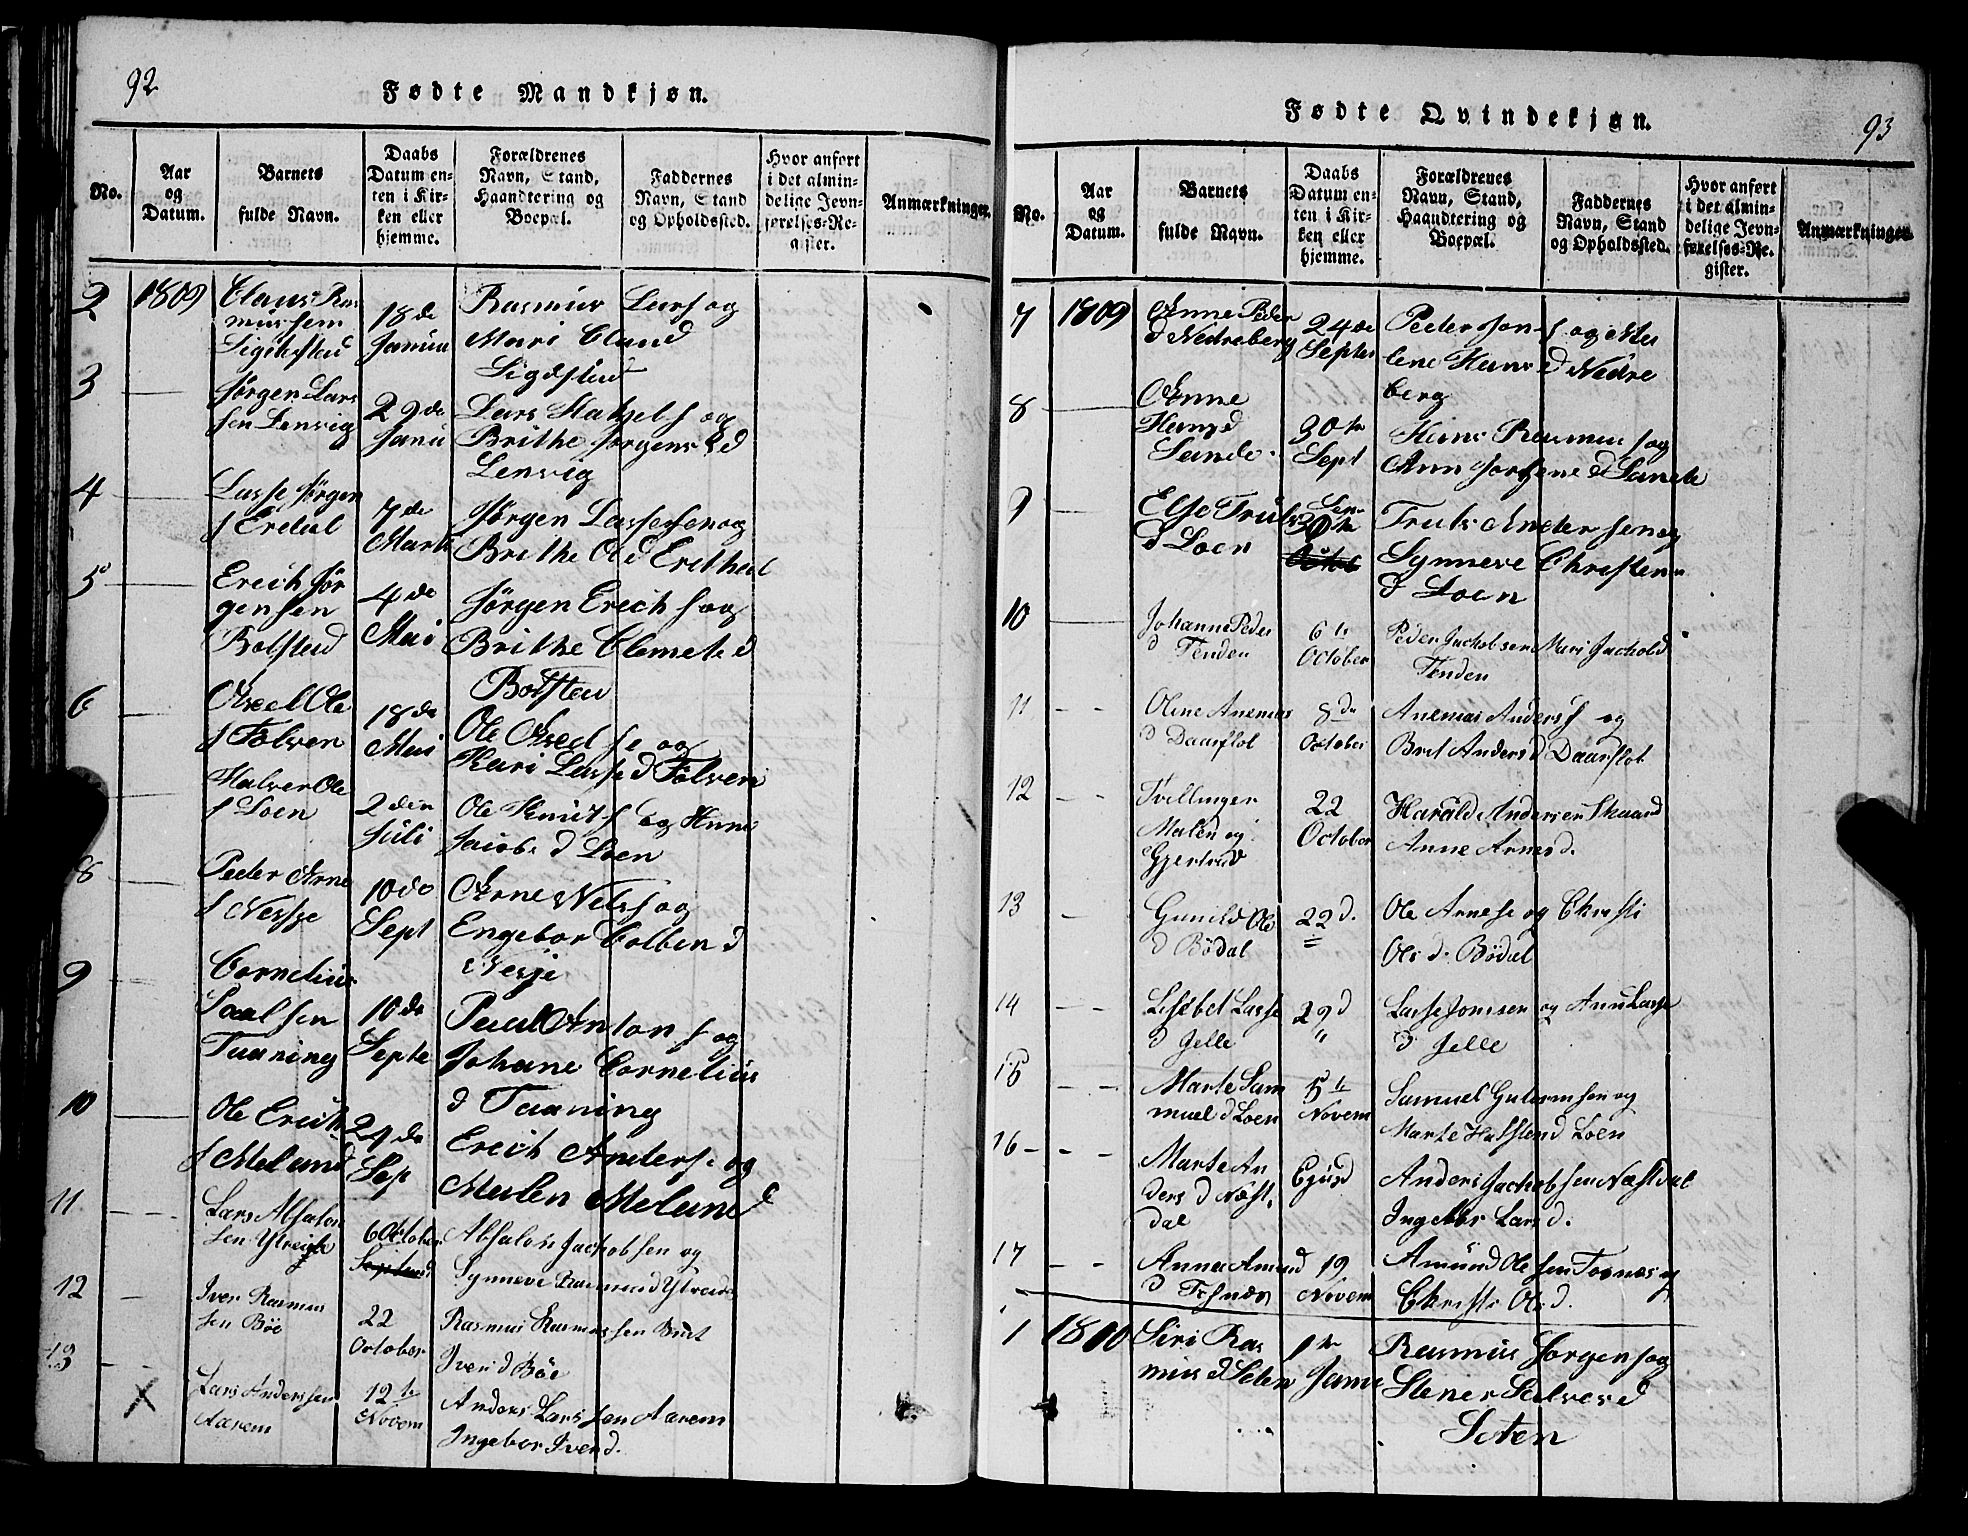 92
Fødte Mandkjøn.
No.
Aar
og
Datum.
Barnets
fulde Navn.
Daabs
Datum en-
ten i Kir-
ken eller
hjemme.
Forældrenes
Navn, Stand,
Haandtering og
Boepæl.
Faddernes
Navn, Stand
og Opholdssted.
Hvor anført
i det almin-
delige Jevn-
førelses-Re-
gister.
Anmærkninger.
2 1809
Claus Ras
mussen
18de
Janua
Rasmus Lars s og
Mari Claus d
3
Jørgen Lars
sen Lenvig
29de
Janu
Lars s og
Brithe Jørgens d
Lenvig
4
Lasse Jørgen
s Erdal
7de
Marti
Jørgen Lassesen og
Brithe Ole d
5
Erich Jør
gensen
Bolstad
4de
Mai
Jørgen Erich s og
Brithe Clemet d
Bolstad
6
Axel Ole
s Folven
18de
Mai
Ole Axel se og
Kari Lasse d Folven
Halver Ole
s Loen
2den
Juli
Ole Knut s og Anne
Jacobs d Loen
8
Peder Arne
s Nessje
10de
Sept
Arne Nels s og
Engebor Colben d
Nesje
9
Cornelius
Paulsen
Tunning
10de
Septe
Paul Anton s og
Johane Cornelius
d Tunning
10
Ole Erich
s Melund
24de
Sep
Erich Anders s og
Malen Melund
11
Lars Absalon
sen Ytreide
6 October
Absalon Jachobsen og
Synneve Rasmus d Ytreide
12
Iver Rasmus
sen Böe
22
October
Rasmus Rasmussen Brit
Iver d Böe
13
Lars Anderssen
Aarem
12te
Novem
Anders Larssen Aarem
Ingebor Iver d.
Fødte Qvindekjøn.
93
No.
Aar
og
Datum.
Barnets
fulde Navn.
Daabs
Datum en-
ten i Kir-
ken eller
hjemme.
Forældrenes
Navn, Stand,
Haandtering og
Boepæl.
Faddernes
Navn, Stand
og Opholdssted.
Hvor anført
i det almin-
delige Jevn-
førelses-Re-
gister.
Anmærkninger.
7 1809
Anne Peder
d Nedreberg
24de
Septe
Peder Jon s og
lene Hans d Nedre
berg
8
Anne
Hans d
Sande
30te
Sept
Hans Rasmus s og
Ann Jorgene d Sande
9
Else Truls
d Loen
30te
Truls Andersen og
Synneve Christen
d Loen
10
Johanne Peder
d Tenden
6te
October
Peder Jachobsen Mari Jachob d
Tenden
11
Oline Anemas
d Daarflot
8de
October
Anemas Anders s og
Brit Anders d Daarflot
12
Tvillinger
Malen og
Gjertrud
22
October
Harald Andersen Skaard
Anne Arnes d.
13
Gunild Ole
d Bödal
22d.
Ole Arnese og Christi
Ols d. Bödal
14
Lisebet Lasse
d Jelle
29d
Lasse Jonssen og Anne Lasse
d Jelle
15
Marte Sam
muel d Loen
5te
Novem
Samuel Gutormsen og
Marte Halsten d Loen
16
Marte An
ders d Næst.
dal
Ejusd
Anders Jachobsen Næstdal
Ingebor Lars d.
17
Anna Amund
19
Novem
Amund Olesen Tosnæs og
Christi Ols d.
1 1810
Siri Ras
mus d Seten
1te
Janu
Rasmus Jorgens og
Stener d
Seten